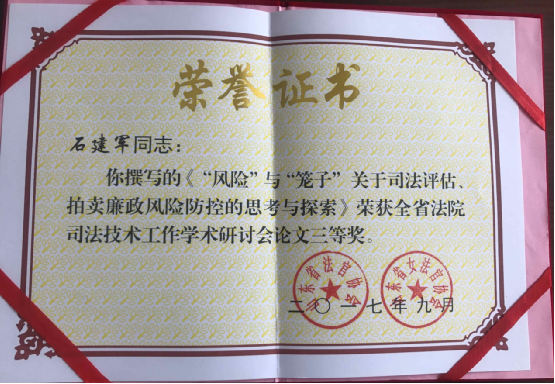 荣誉证书
石建军同志：
你撰写的《“风险”与“笼子”关于司法评估、
拍卖廉政风险防控的思考与探索》荣获全省法院
司法技术工作学术研讨会论文三等奖。
山东省法官协会
山东省女法官协会
二〇一七年九月